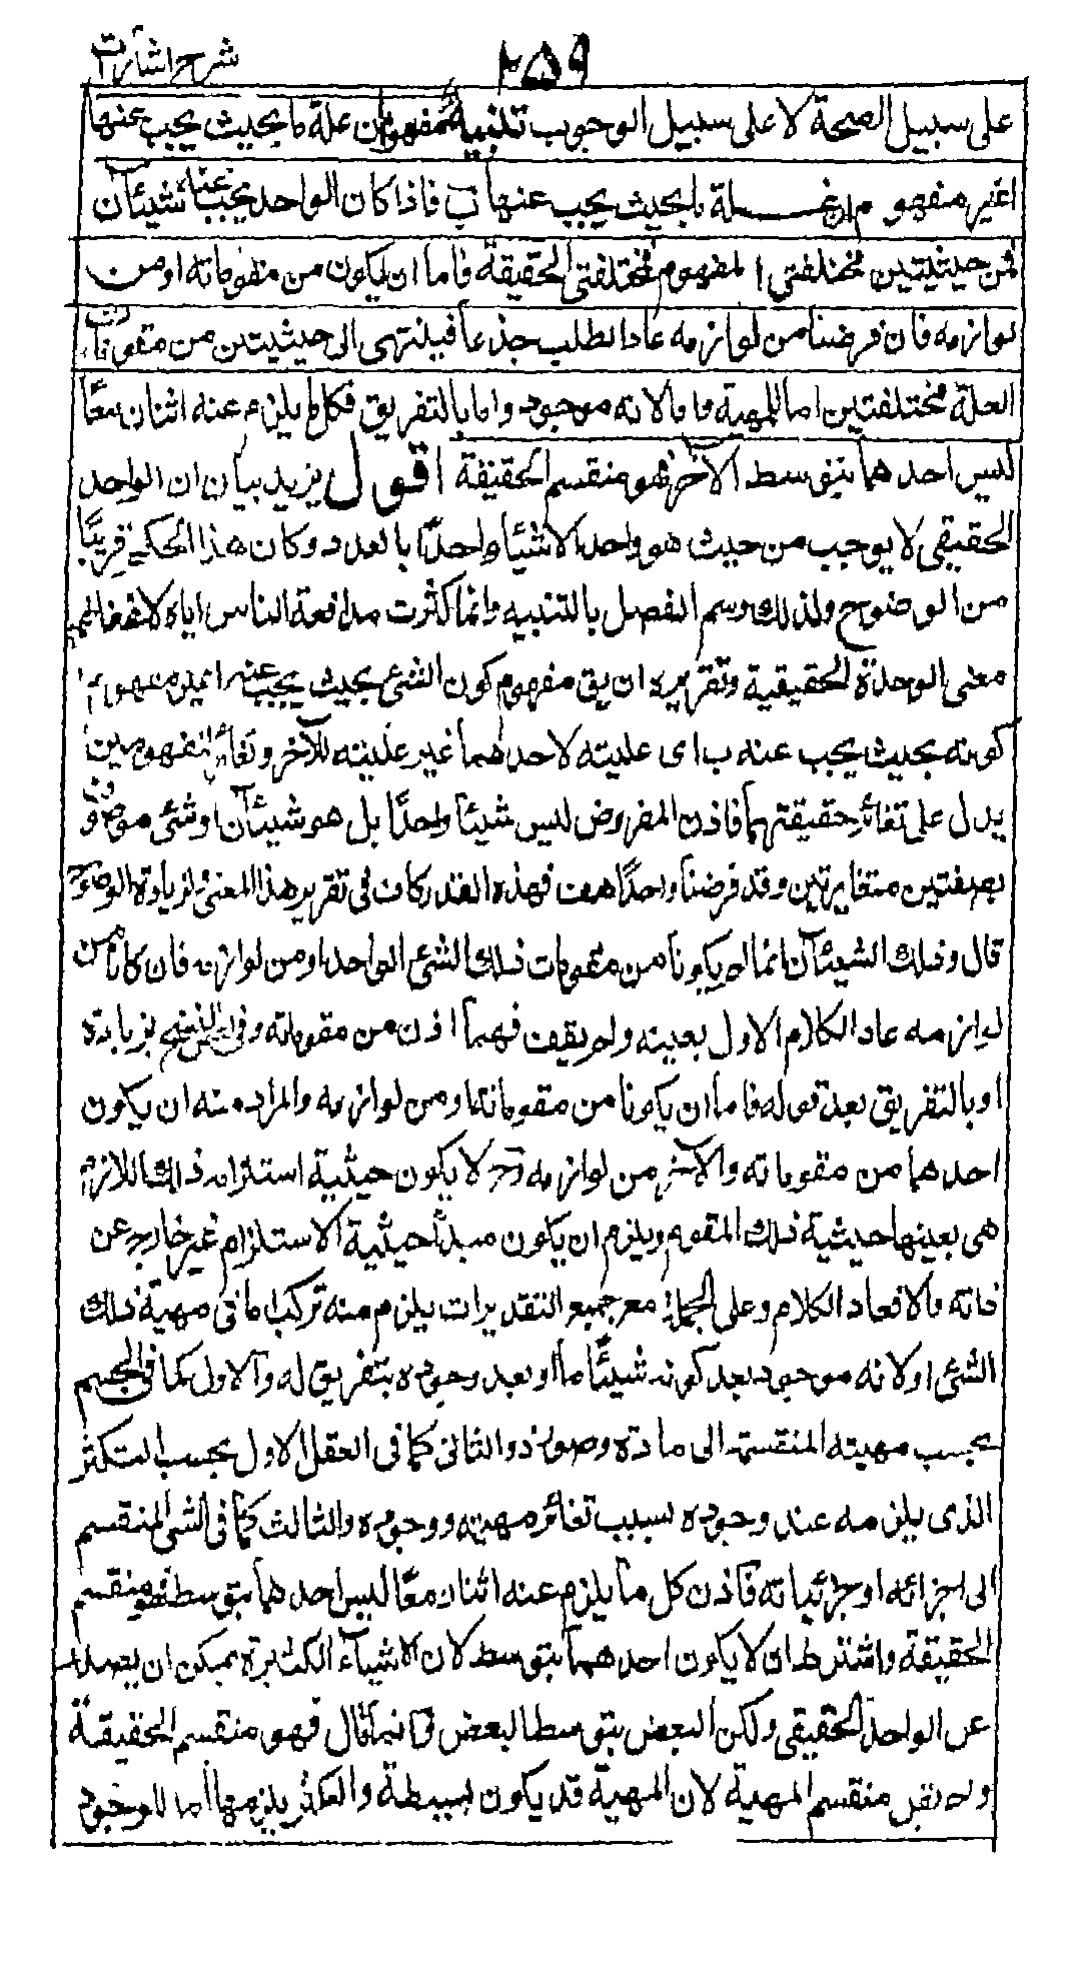 شرح اشارات
۲۵۹
على سبيل الصحة لا على سبيل الوجوب تنبيه مفهوم ان علة ما بحيث يجب عنها
ا غير مفهوم ان علة ما بحيث يجب عنها ب فاذا كان الواحد يجب عنه شيئآن
فمن حيثيتين مختلفتى المفهوم مختلفتى الحقيقة فاما ان يكون من مقوماته او من
لوازمه فان فرضنا من لوازمه عاد الطلب جذعا فينتهى الى حيثيتين من مقومات
العلة مختلفتين اما للمهية واما لانه موجود واما بالتفريق فكل ما يلزم عنه اثنان معًا
ليس احدهما بتوسط الآخر فهو منقسم الحقيقة اقول يزيد بيان ان الواحد
الحقيقى لا يوجب من حيث هو واحد الا شيئا واحدًا بالعدد وكان هذا الحكم قريبًا
من الوضوح ولذلك وسم الفصل بالتنبيه وانما كثرت مدافعة الناس اياه لاغفالهم
معنى الوحدة الحقيقية وتقريره ان يق مفهوم كون الشئ بحيث يجب عنه ا غير مفهوم
كونه بحيث يجب عنه ب اى عليته لاحدهما غير عليته للآخر وتغائر المفهومين
يدل على تغائر حقيقتهما فاذن المفروض ليس شيئا واحدًا بل هو شيئآن او شئ موصوف
بصفتين متغايرتين وقد فرضناه واحدًا هف فهذا القدر كاف فى تقرير هذا المعنى ولزيادة الوضوح
قال وذلك الشيئآن اما ان يكونا من مقومات ذلك الشئ الواحد او من لوازمه فان كانا من
لوازمه عاد الكلام الاول بعينه ولم يقف فهما اذن من مقوماته وفى بعض النسخ بزيادة
او بالتفريق بعد قوله فاما ان يكونا من مقوماته او من لوازمه والمراد منه ان يكون
احدهما من مقوماته والآخر من لوازمه وح لا يكون حيثية استلزام ذلك اللازم
هى بعينها حيثية ذلك المقوم ويلزم ان يكون مبدأ حيثية الاستلزام غير خارج عن
ذاته والا فعاد الكلام وعلى الجملة مع جميع التقديرات يلزم منه تركب اما فى مهية ذلك
الشئ او لانه موجود بعد كونه شيئًا ما او بعد وجوده بتفريق له والاول كما فى الجسم
بحسب مهيته المنقسمة الى مادة وصورة والثانى كما فى العقل الاول بحسب التكثر
الذى يلزمه عند وجوده بسبب تغائر مهيته ووجوده والثالث كما فى الشئ المنقسم
الى اجزائه او جزئياته فاذن كل ما يلزم عنه اثنان معًا ليس احدهما بتوسط فهو منقسم
الحقيقة واشترط ان لا يكون احدهما بتوسط لان الاشيآء الكثيرة يمكن ان يصدر
عن الواحد الحقيقى ولكن البعض بتوسط البعض وانما قال فهو منقسم الحقيقة
ولم يقل منقسم المهية لان المهية قد يكون بسيطة والتكثر يلزمها اما للوجود